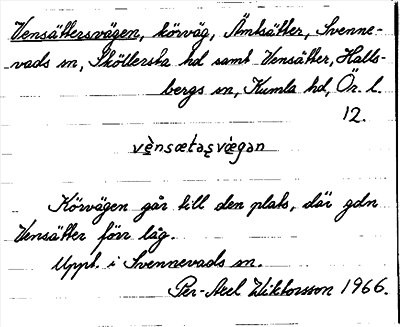 Vensättersvägen, körväg, Ämtsätter, Svenne-
vads sn, Sköllersta hd samt Vensätter, Halls-
bergs sn, Kumla hd, Ör. l.
12.
vènsætaʂvægan
Körvägen går till den plats, där gdn
Vensätter förr låg.
Uppt. i Svennevads sn.
Per-Axel Wiktorsson 1966.